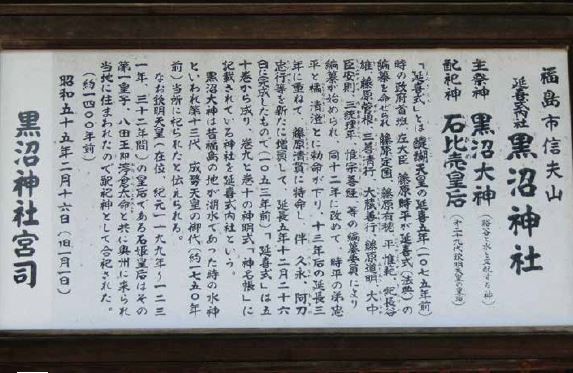 福島市信夫山
延喜式内社 黒沼神社
主祭神 黒沼大神
配祀神 石比売皇后
「延喜式」とは醍醐天皇の延喜五年(一〇七五年前)
時の政府首班 左大臣 藤原時平が延喜式(法典)の
編纂を命ぜられ 藤原定国 藤原有穂 平惟範 紀長谷
雄 藤原菅根 三善清行 大蔵善行 藤原道明 大中
臣安則 三統理平 惟宗善経 等の編纂委員により
編纂が始められ 同十二年に改めて 時平の弟忠
平と橘 清澄とに勅命が下り、十三年后の延長三
年に重ねて 藤原清貫に特命し、伴 久永、阿刀
忠行等を新たに増員して、延長五年十二月二十六
日に完成したもので(一〇五三年前)「延喜式」は五
十巻から成り、巻九と巻十の神明式「神名帳」に
記載されている神社を延喜式内社という。
黒沼大神は昔福島の地が湖水であった時の水神
といわれ第十三代 成務天皇の御代(約一七五〇年
前)当所に祀られたと伝えられる。
なお欽明天皇(在位、紀元一一九九年〜一二三
一年、三十二年間)の皇后である石姫皇后はその
第一皇子、八田王即渟倉太命と共に奥州に来られ
当地に住まわれたので配祀神として合祀された。
(約一四〇〇年前)
昭和五十五年二月十六日(旧一月一日)
黒沼神社宮司